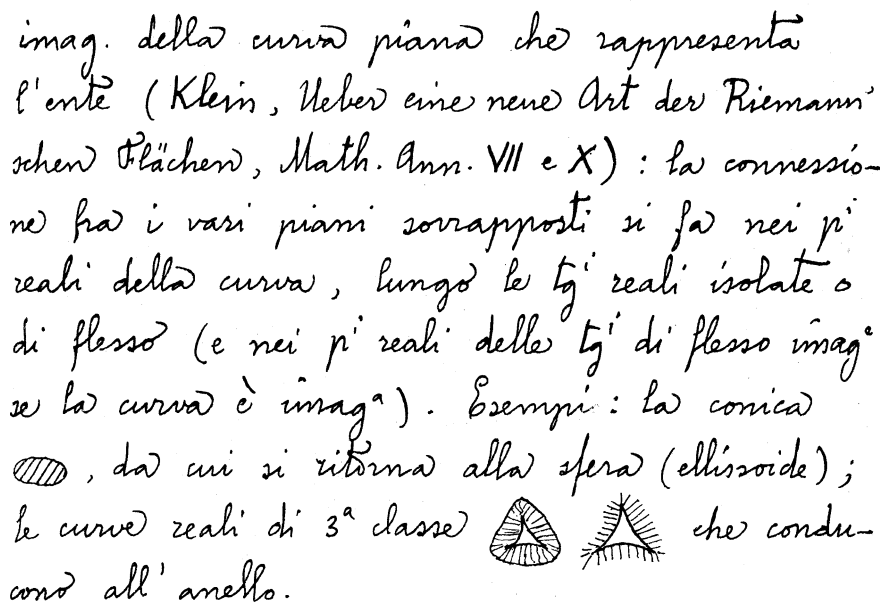 imag. della curva piana che rappresenta
l'ente (Klein, Ueber eine neue Art der Riemann'
schen Flächen, Math. Ann. VII e X) : la connessio-
ne fra i vari piani sovrapposti si fa nei pⁱ
reali della curva, lungo le tgⁱ reali isolate o
di flesso (e nei pⁱ reali delle tgⁱ di flesso imagᵉ
se la curva è imagᵃ). Esempi : la conica
, da cui si ritorna alla sfera (ellissoide) ;
le curve reali di 3ᵃ classe che condu-
cono all' anello.